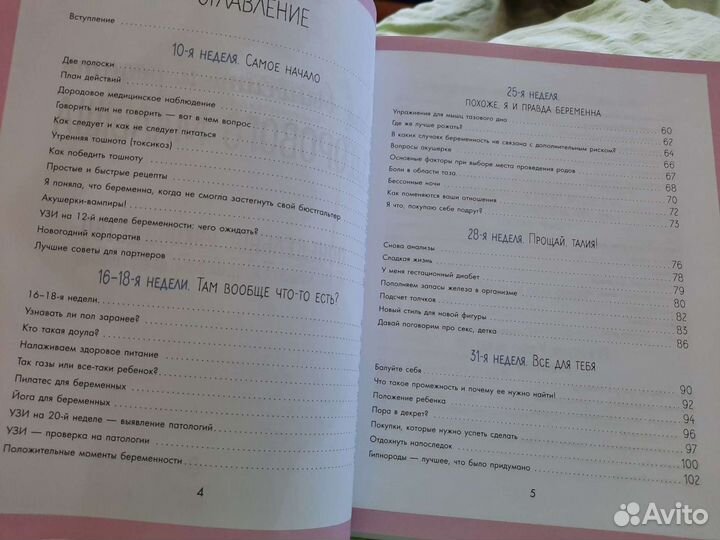 ОГЛАВЛЕНИЕ
Вступление
10-я неделя. Самое начало
Две полоски
План действий
Дородовое медицинское наблюдение
Говорить или не говорить — вот в чем вопрос
Как следует и как не следует питаться
Утренняя тошнота (токсикоз)
Как победить тошноту
Простые и быстрые рецепты
Я поняла, что беременна, когда не смогла застегнуть свой бюстгальтер
Акушерки-вампиры!
УЗИ на 12-й неделе беременности: чего ожидать?
Новогодний корпоратив
Лучшие советы для партнеров
16–18-я недели. Там вообще что-то есть?
16–18-я недели
Узнавать ли пол заранее?
Кто такая доула?
Налаживаем здоровое питание
Так газы или все-таки ребенок?
Пилатес для беременных
Йога для беременных
УЗИ на 20-й неделе — выявление патологий
УЗИ — проверка на патологии
Положительные моменты беременности
4
25-я неделя.
Похоже, я и правда беременна
Упражнения для мышц тазового дна 60
Где же лучше рожать? 62
В каких случаях беременность не связана с дополнительным риском? 64
Вопросы акушерке 66
Основные факторы при выборе места проведения родов 67
Боли в области таза 68
Бессонные ночи 70
Как поменяются ваши отношения 72
Я что, покупаю себе подруг? 73
28-я неделя. Прощай, талия!
Снова анализы 76
Сладкая жизнь 78
У меня гестационный диабет 79
Пополняем запасы железа в организме 80
Подсчет толчков 82
Новый стиль для новой фигуры 83
Давай поговорим про секс, детка 86
31-я неделя. Все для тебя
Балуйте себя 90
Что такое промежность и почему ее нужно найти! 92
Положение ребенка 94
Пора в декрет? 96
Покупки, которые нужно успеть сделать 97
Отдохнуть напоследок 100
Гипнороды — лучшее, что было придумано 102
5
Avito